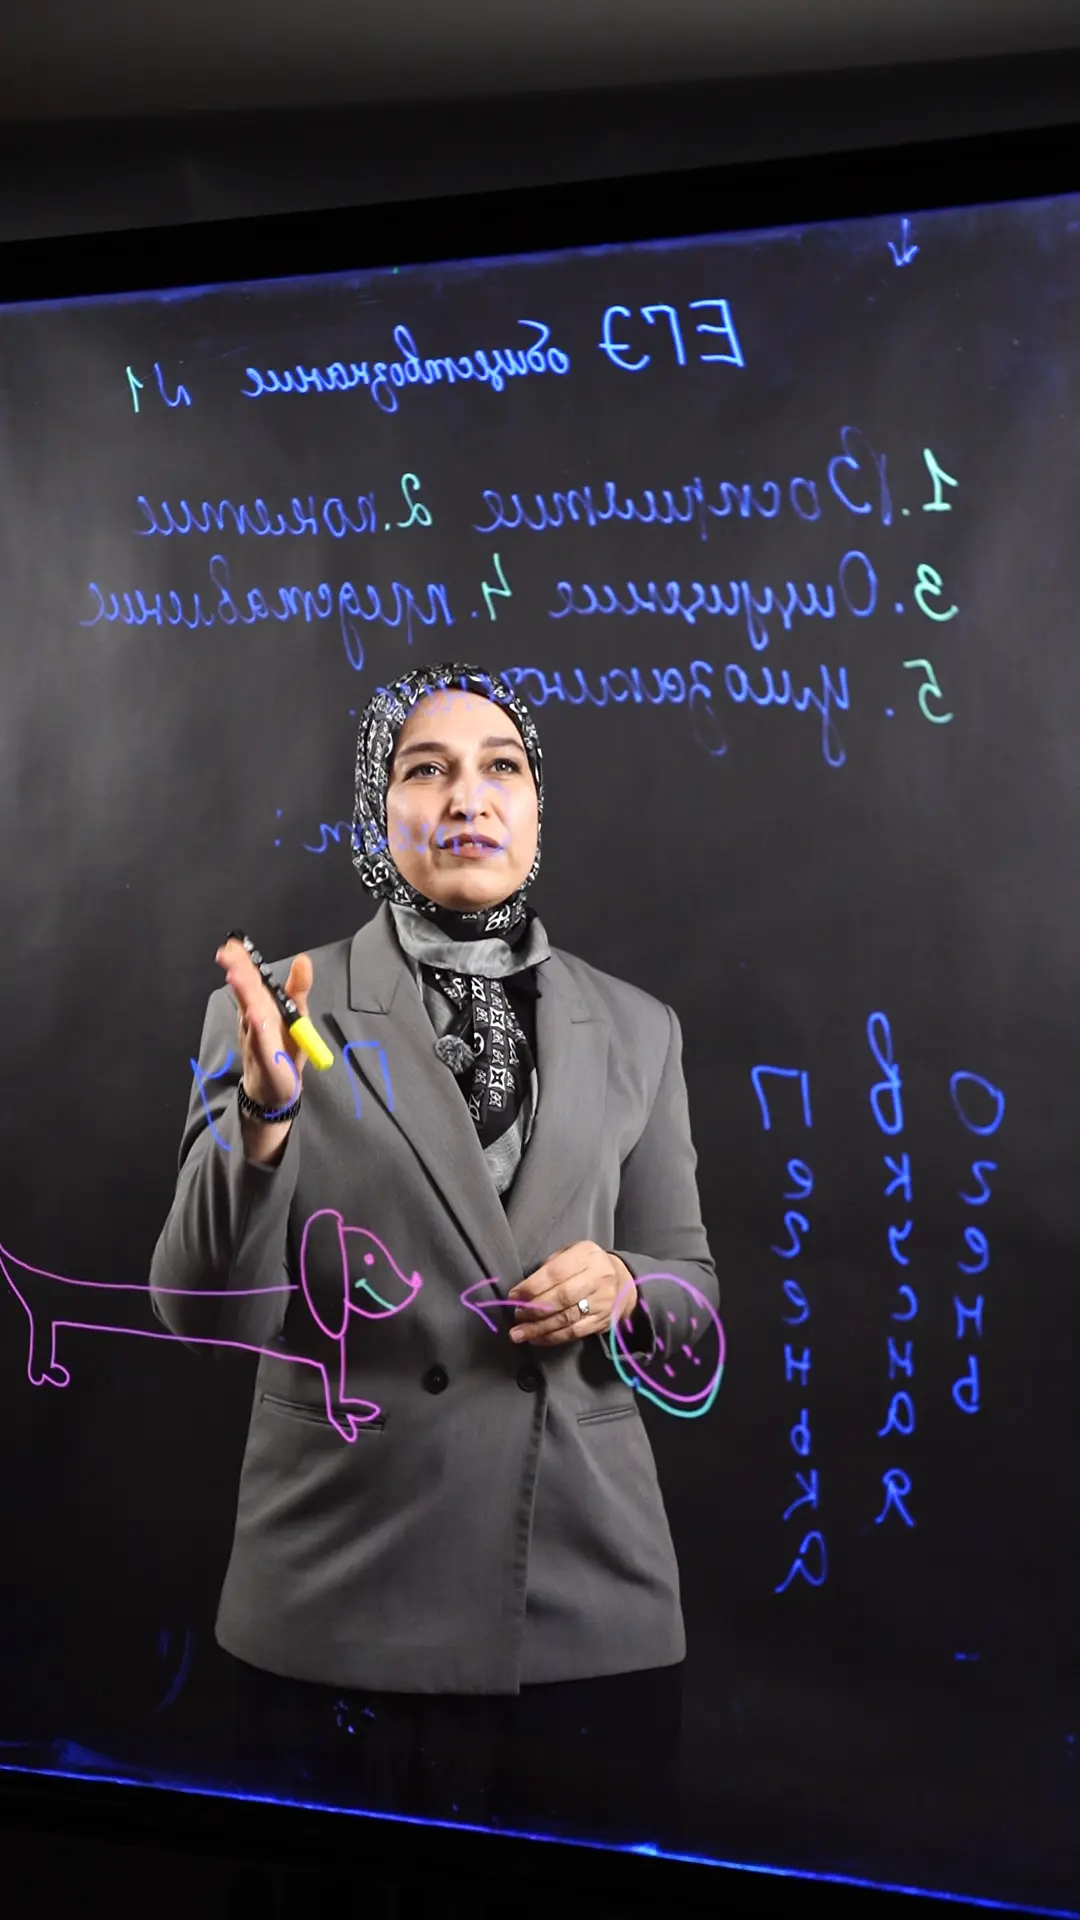 ЕГЭ обществознание №1
1. Восприятие 2. понятие
3. Ощущение 4. представление
5. Умозаключение.
П С У
Очень
вкусная
Печенька